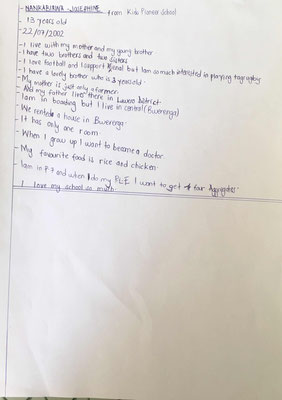 - NANKABIRWA - JOSEPHINE from Kids Pioneer School
- 13 years old
- 22/07/2002
- I live with my mother and my young brother
- I have two brothers and two sisters
- I love football and I support but Iam so much interested in playing tagrugby
- I have a lovely brother who is 3 years old.
- My mother is just only a farmer.
- And my father lives there in Luwero District.
- Iam in boarding but I live in central (Bwerenga)
- We rented a house in Bwerenga
- It has only one room.
- When I grow up I want to become a doctor.
- My favourite food is rice and chicken.
- Iam in P.7 and when I do my PLE I want to get 4 four Aggregates.
- I love my school so much.